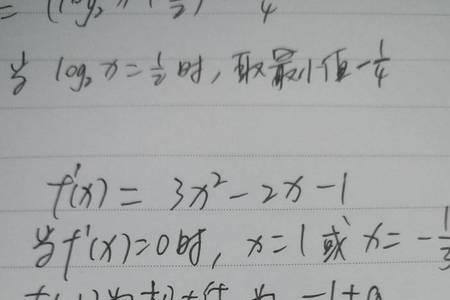 = (log₂ x - 1/2)² - 1/4
当 log₂ x = 1/2 时, 取最小值 - 1/4
f'(x) = 3x² - 2x - 1
当 f'(x) = 0 时, x = 1 或 x = - 1/3
-1+a